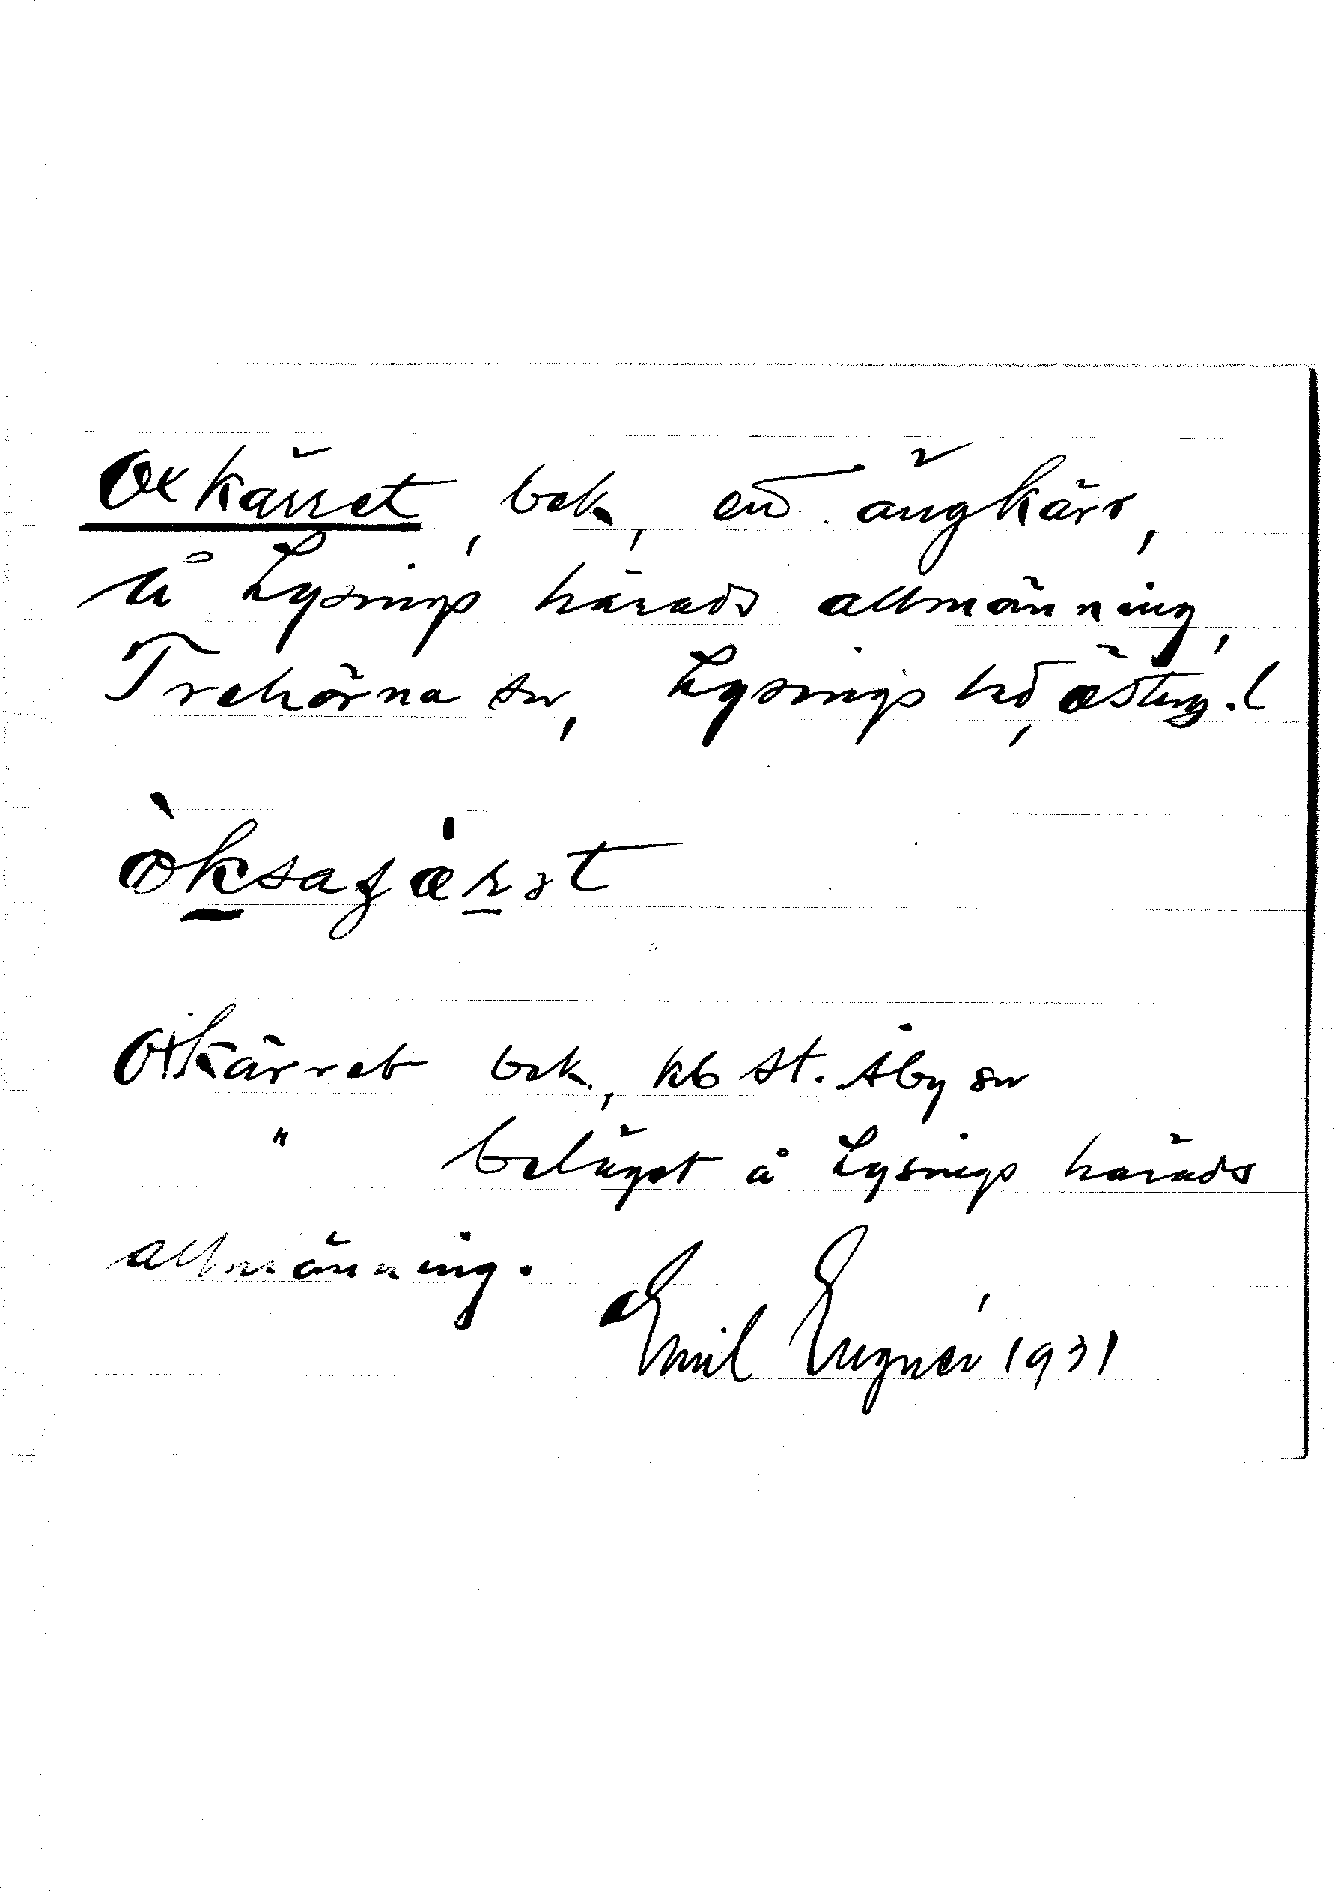 Oxkärret, bek, ett ängkärr,
å Lysings härads allmänning,
Trehörna sn, Lysings hd, Österg.l
Oxkärret bek, kb St. Åby sn
" beläget å Lysings härads
allmänning.
Emil 1931